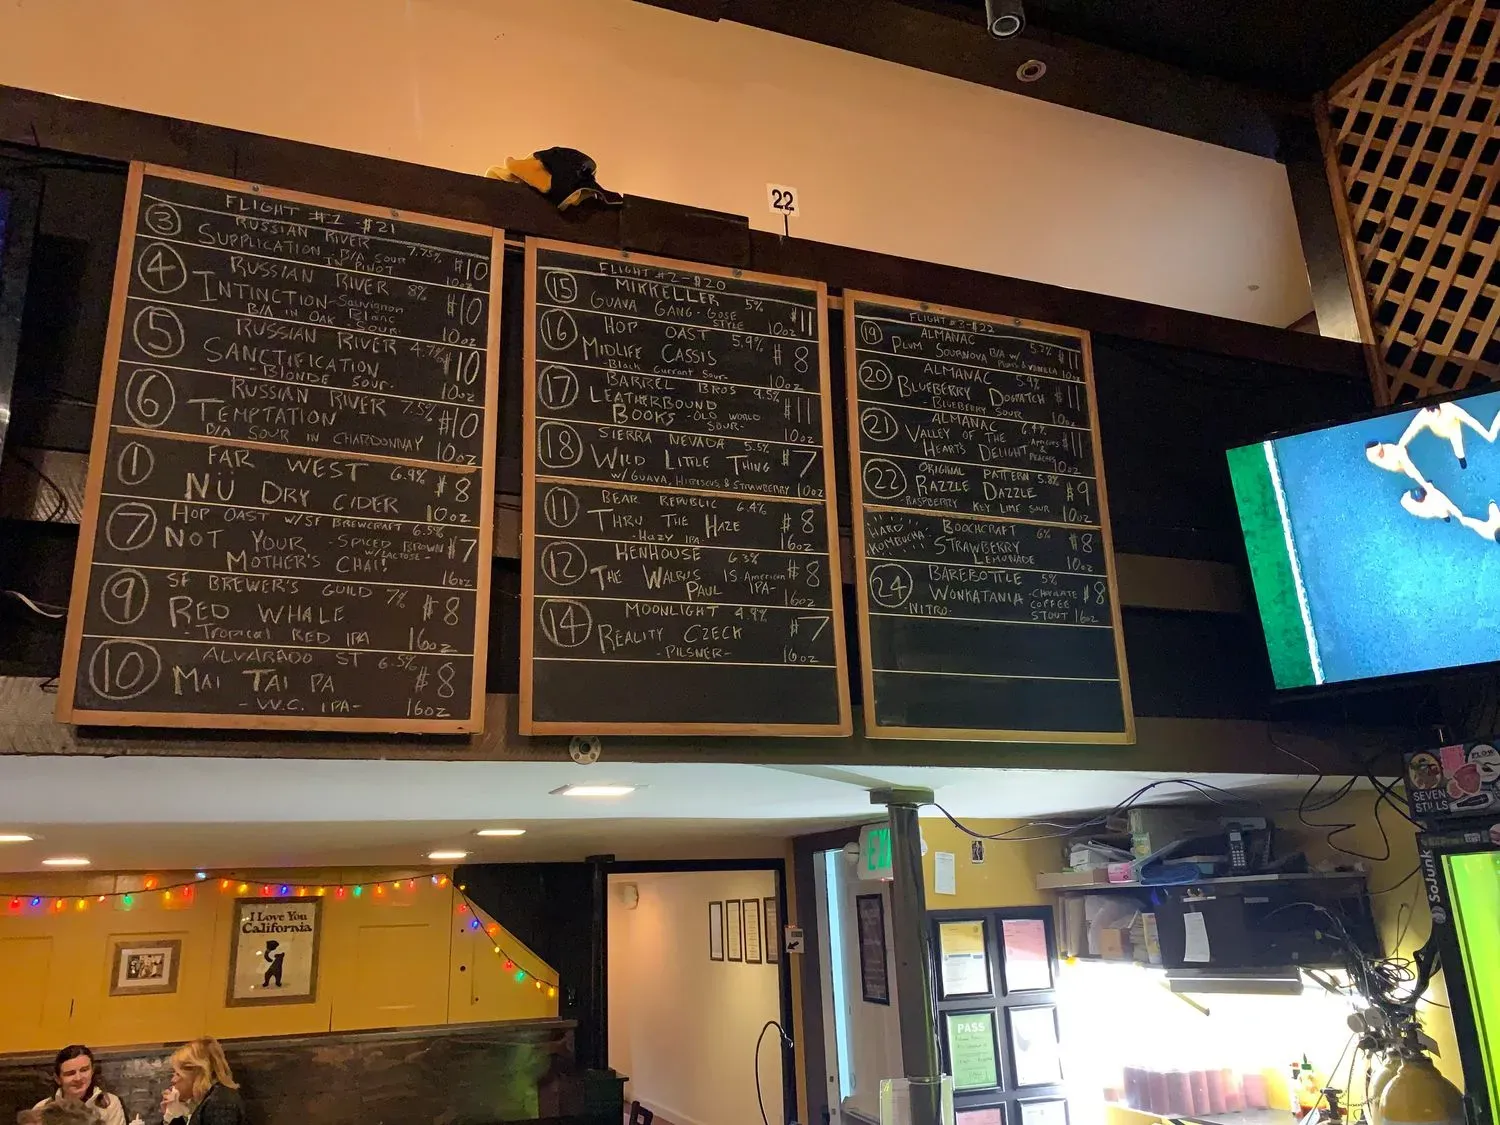 FLIGHT #1 - $21
3 RUSSIAN RIVER 7.75% $10
SUPPLICATION - B/A SOUR
IN PINOT 10oz
4 RUSSIAN RIVER 8% $10
INTINCTION - Sauvignon Blanc
B/A IN OAK - SOUR - 10oz
5 RUSSIAN RIVER $10
SANCTIFICATION
- BLONDE SOUR - 10oz
6 RUSSIAN RIVER 7.5% $10
TEMPTATION
B/A SOUR IN CHARDONNAY 10oz
1 FAR WEST 6.9% $8
NU DRY CIDER 10oz
7 HOP OAST W/ SF BREWCRAFT 6.5%
NOT YOUR - SPICED BROWN $7
W/LACTOSE -
MOTHER'S CHAI! 16oz
9 SF BREWER'S GUILD 7% $8
RED WHALE
- TROPICAL RED IPA 16oz
10 ALVARADO ST 6.5% $8
MAI TAI PA
- W.C. IPA - 16oz
FLIGHT #2 - $20
15 MIKKELLER 5% $11
GUAVA GANG - GOSE STYLE 10oz
16 HOP OAST 5.9% $8
MIDLIFE CASSIS
- Black Currant Sour - 10oz
17 BARREL BROS 9.5% $11
LEATHERBOUND
BOOKS - OLD WORLD SOUR - 10oz
18 SIERRA NEVADA 5.5% $7
WILD LITTLE THING
W/ GUAVA, HIBISCUS, & STRAWBERRY 10oz
11 BEAR REPUBLIC 6.4% $8
THRU THE HAZE
- HAZY IPA - 16oz
12 HENHOUSE 6.3% $8
THE WALRUS IS - American
PAUL IPA - 16oz
14 MOONLIGHT 4.9% $7
REALITY CZECK
- PILSNER - 16oz
FLIGHT #3 - $22
19 ALMANAC 5.7% $11
PLUM SOURNOVA B/A W/ PLUMS & VANILLA 10oz
20 ALMANAC 5.9% $11
BLUEBERRY DOGPATCH
BLUEBERRY SOUR 10oz
21 ALMANAC $11
VALLEY OF THE APRICOTS &
HEARTS DELIGHT PEACHES 10oz
22 ORIGINAL PATTERN 5.8% $9
RAZZLE DAZZLE
- RASPBERRY KEY LIME SOUR 10oz
HARD BOOCHCRAFT 6% $8
KOMBUCHA STRAWBERRY
LEMONADE 10oz
24 BAREBOTTLE 5% $8
WONKATANIA - CHOCOLATE
- NITRO - COFFEE
STOUT 16oz
22
I Love You
California
EXI
PASS
SEVEN
STILLS
SoJunk